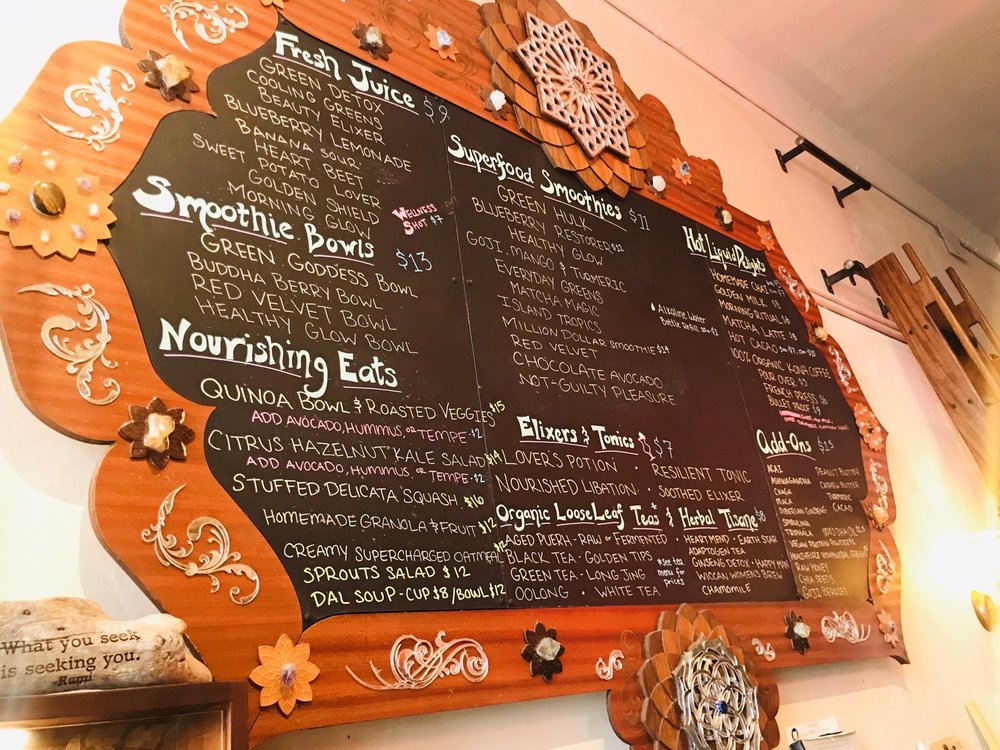 Fresh Juice $9
GREEN DETOX
COOLING GREENS
BEAUTY ELIXER
BLUEBERRY LEMONADE
BANANA SOUR
HEART BEET
SWEET POTATO LOVER
GOLDEN SHIELD
MORNING GLOW
WELLNESS
SHOT $7
Smoothie Bowls $13
GREEN GODDESS BOWL
BUDDHA BERRY BOWL
RED VELVET BOWL
HEALTHY GLOW BOWL
Nourishing Eats
QUINOA BOWL & ROASTED VEGGIES $15
ADD AVOCADO, HUMMUS, OR TEMPE $2
CITRUS HAZELNUT KALE SALAD $14
ADD AVOCADO, HUMMUS OR TEMPE $2
STUFFED DELICATA SQUASH $16
HOMEMADE GRANOLA & FRUIT $12
CREAMY SUPERCHARGED OATMEAL $12
SPROUTS SALAD $12
DAL SOUP - CUP $8/BOWL $12
Superfood Smoothies $11
GREEN HULK
BLUEBERRY RESTORED $12
HEALTHY GLOW
GOJI, MANGO & TURMERIC
EVERYDAY GREENS
MATCHA MAGIC
ISLAND TROPICS
MILLION DOLLAR SMOOTHIE $14
RED VELVET
CHOCOLATE AVOCADO
NOT-GUILTY PLEASURE
Alkaline Water
Bottle Refill
Elixers & Tonics $7
LOVER'S POTION · RESILIENT TONIC
NOURISHED LIBATION · SOOTHED ELIXER
Organic Loose Leaf Teas & Herbal Tisane
AGED PUERH - RAW OR FERMENTED
BLACK TEA - GOLDEN TIPS
GREEN TEA - LONG JING
OOLONG · WHITE TEA
*see tea
menu for
prices
HEARTMEND · EARTH STAR
ADAPTOGEN TEA
GINSENG DETOX · HAPPY MAN
WICCAN WOMEN'S BREW
CHAMOMILE
Hot Liquid Delights
HOMEMADE CHAI
GOLDEN MILK $8
MORNING RITUAL $8
MATCHA LATTE $8
HOT CACAO
100% ORGANIC KONA COFFEE
POUR OVER $5
FRENCH PRESS $6
BULLET PROOF $9
Add-Ons $1.5
ACAI
ASHWAGANDHA
CHAGA
MACA
SIBERIAN GINSENG
SPIRULINA
TRIPHALA
VEGAN PROTEIN POWDER
RAW HONEY
CHIA SEEDS
GOJI BERRIES
PEANUT BUTTER
CASHEW BUTTER
TURMERIC
CACAO
What you seek
is seeking you.
-Rumi